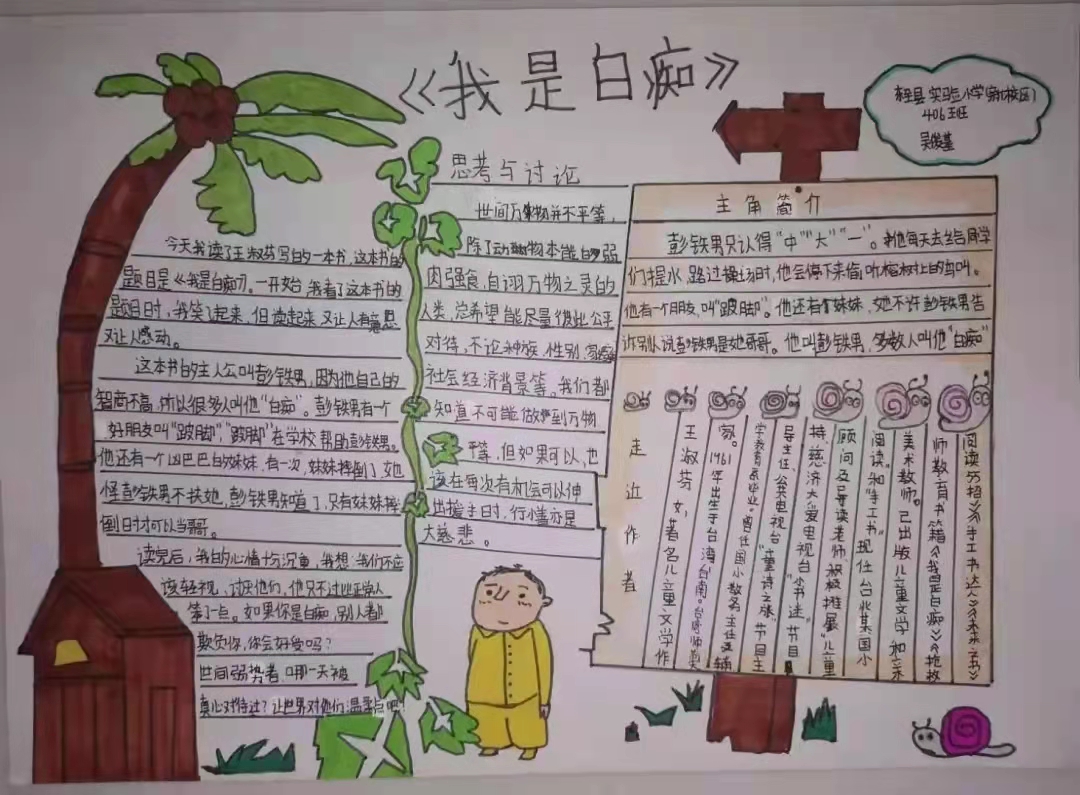 《我是白痴》
实验小学
406班
思考与讨论
世间万物并不平等，
除了动物本能的弱
肉强食，自诩万物之灵的
人类，总希望能尽量彼此公平
对待，不论种族，性别，
社会经济背景等。我们都
知道不可能做到万物
平等，但如果可以，也
该在每次有机会可以伸
出援手时，行善亦是
大慈悲。
今天我读了王淑芬写的一本书，这本书的
题目是《我是白痴》。一开始，我看了这本书的
题目时，我笑了起来，但读起来又让人有意思
又让人感动。
这本书的主人公叫彭铁男，因为他自己的
智商不高，所以很多人叫他“白痴”。彭铁男有一个
好朋友叫“跛脚”，“跛脚”在学校帮助彭铁男。
他还有一个凶巴巴的妹妹，有一次，妹妹摔倒了，她
怪彭铁男不扶她，彭铁男知道了，只有妹妹摔
倒时才可以当哥。
读完后，我的心情十分沉重，我想：我们不应
该轻视、讨厌他们，他只不过比正常人
笨了一点。如果你是白痴，别人都
欺负你，你会好受吗？
世间弱势者，哪一天被
真心对待过？让世界对他们温柔点吧！
主角简介
彭铁男只认得“中”“大”“一”。他每天去给同学
们提水，路过操场时，他会停下来偷听树上的鸟叫。
他有一个朋友，叫“跛脚”。他还有个妹妹，她不许彭铁男告
诉别人说彭铁男是她哥哥。他叫彭铁男，多数人叫他“白痴”
走近作者
王淑芬，女，著名儿童文学作
家。1961年出生于台湾台南。台湾师范
学教育系毕业。曾任国小教务主任、辅
导主任、公共电视台“童诗之旅”节目主
持、慈济大爱电视台“书迷”节目
顾问及导读老师，积极推展“儿童
阅读”和“手工书”。现任台北某国小
美术教师。已出版儿童文学和亲
师教育书籍《我是白痴》《抢救
阅读55招》《手工书